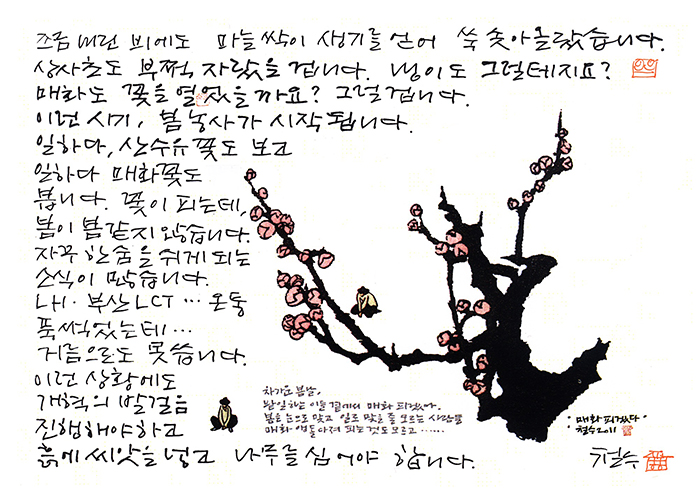 조금 내린 비에도 마늘싹이 생기를 얻어 쑥 솟아올랐습니다.
상사초도 부쩍 자랐을 겁니다. 냉이도 그럴테지요?
매화도 꽃을 열었을까요? 그럴겁니다.
이런 시기, 봄농사가 시작됩니다.
일하다, 산수유꽃도 보고
일하다 매화꽃도
봅니다. 꽃이 피는데,
봄이 봄같지 않습니다.
자꾸 한숨을 쉬게 되는
소식이 많습니다.
LH · 부산LCT … 온통
푹 썩었는데 …
거름으로도 못씁니다.
이런 상황에도
개혁의 발걸음
진행해야하고
흙에 씨앗을 넣고 나무를 심어야 합니다.
차가운 봄날,
밭일하는 이들 곁에서 매화 피었다.
봄을 눈으로 맞고 일로 맞을 줄 모르는 사람들
매화 피는 것도 모르고 ……
"매화 피었다"
철수 2011
철수